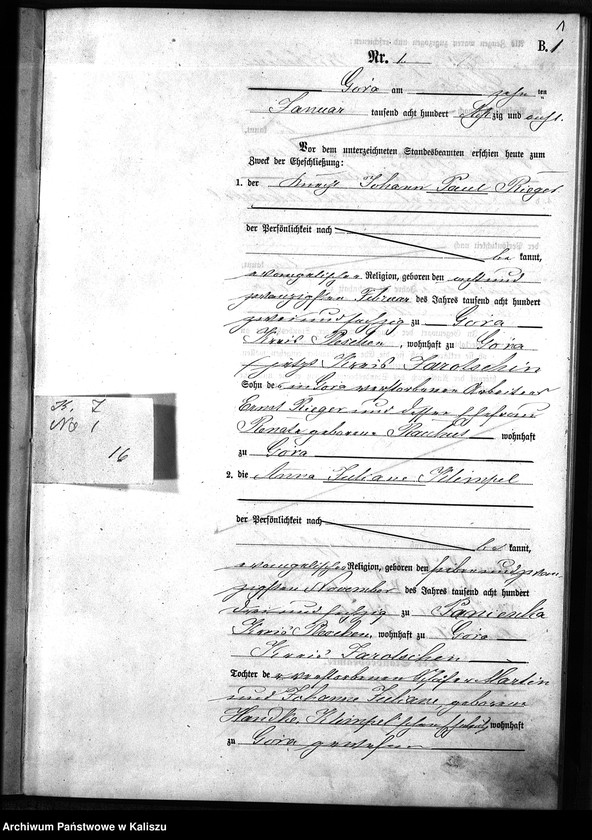 1
B. 1
Nr. 1.
Góra am zehn ten
Januar tausend acht hundert achtzig und acht.
Vor dem unterzeichneten Standesbeamten erschien heute zum
Zweck der Eheschließung:
1. der Knecht Johann Paul Rieger
der Persönlichkeit nach
be kannt,
evangelischer Religion, geboren den acht und
zwanzigsten Februar des Jahres tausend acht hundert
zwei und sechzig zu Góra
Kreis Pleschen, wohnhaft zu Góra
jetzt Kreis Jarotschin
Sohn des in Gora verstorbenen Arbeiters
Ernst Rieger und dessen Ehefrau
Renate geborene wohnhaft
zu Góra
2. die Anna Juliane Klimpel
der Persönlichkeit nach
be kannt,
evangelischer Religion, geboren den sieben und zwan-
zigsten November des Jahres tausend acht hundert
drei und sechzig zu Panienka
Kreis Pleschen, wohnhaft zu Góra
Kreis Jarotschin
Tochter der verstorbenen Schäfer Martin
und Johanne Juliane, geborene
Handke, Klimpel'schen Eheleute, wohnhaft
zu Góra gewesen
K. 7
No 1
16
Archiwum Państwowe w Kaliszu